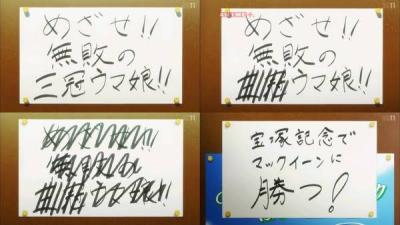 めざせ!!
無敗の
三冠ウマ娘!!
めざせ!!
無敗の
ウマ娘!!
ウマ娘!!
宝塚記念で
マックイーンに
勝つ!